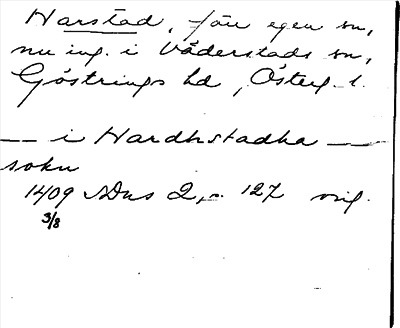 Harstad, förr egen sn,
nu ing. i Väderstads sn,
Göstrings hd, Österg. l.
— — i Hardhstadha —
sokn
1409 SDns 2, s. 127 orig.
3/8